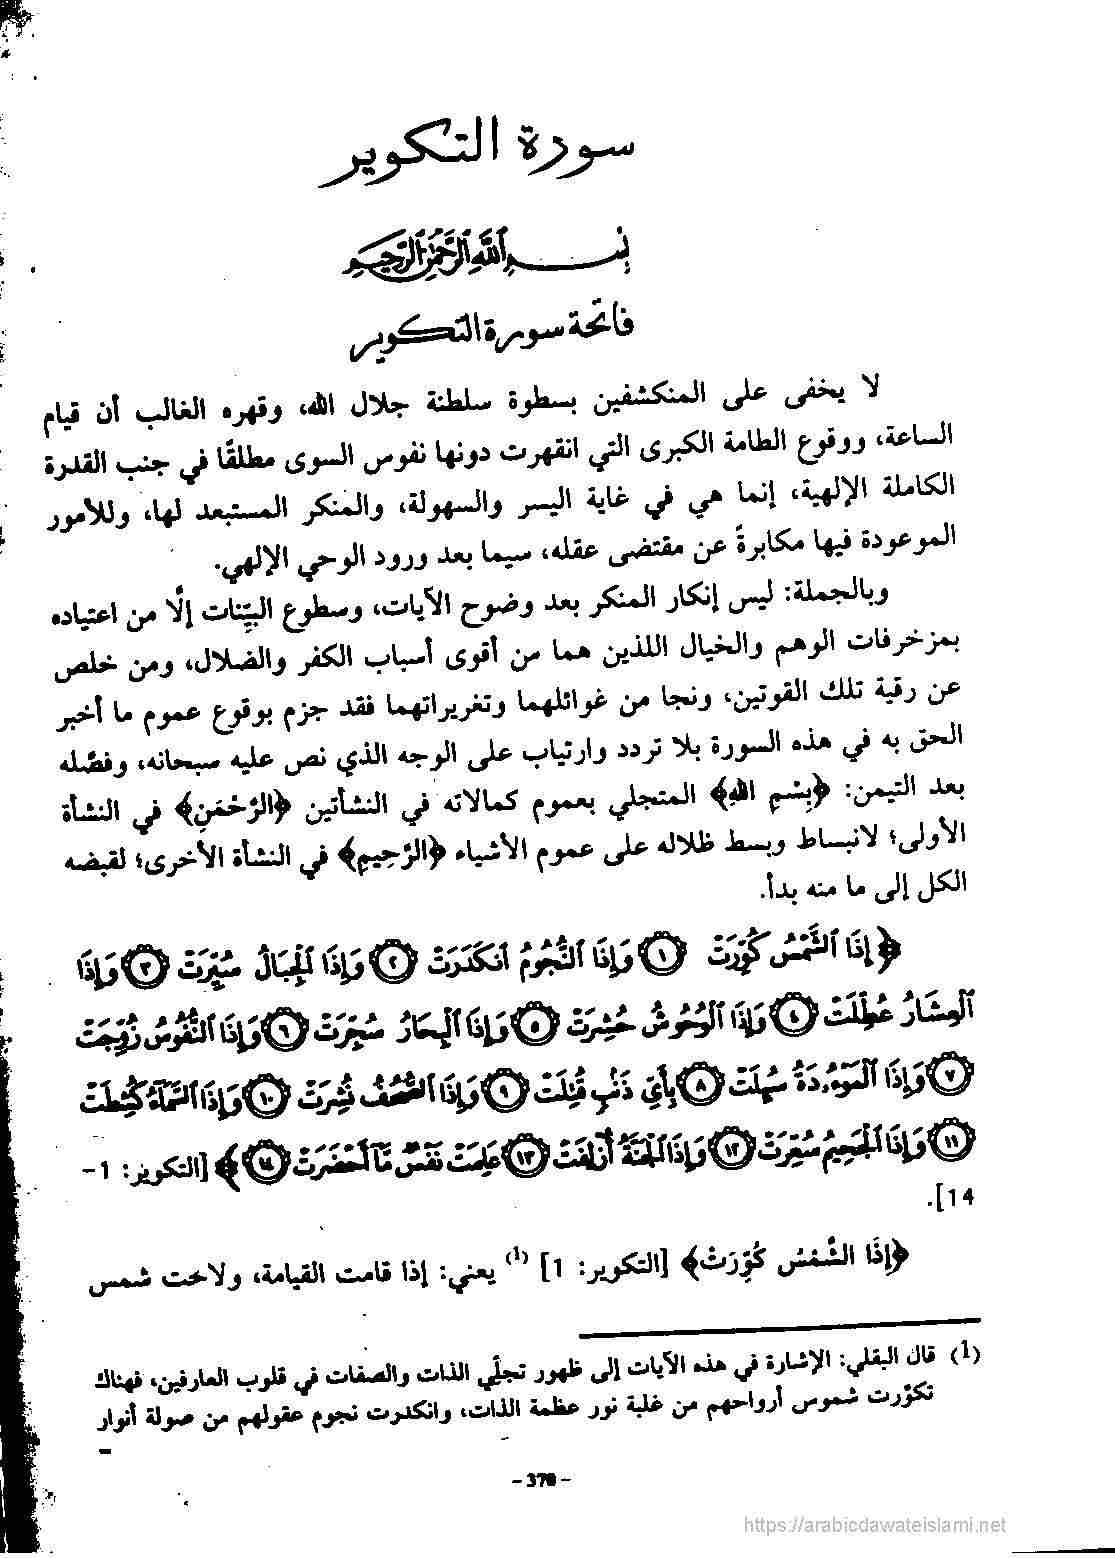 سورة التكوير
بِسْمِ ٱللَّهِ ٱلرَّحْمَٰنِ ٱلرَّحِيمِ
فاتحة سورة التكوير
لا يخفى على المنكشفين بسطوة سلطنة جلال الله، وقهره الغالب أن قيام
الساعة، ووقوع الطامة الكبرى التي انقهرت دونها نفوس السوى مطلقًا في جنب القدرة
الكاملة الإلهية، إنما هي في غاية اليسر والسهولة، والمنكر المستبعد لها، وللأمور
الموعودة فيها مكابرةً عن مقتضى عقله، سيما بعد ورود الوحي الإلهي.
وبالجملة: ليس إنكار المنكر بعد وضوح الآيات، وسطوع البيِّنات إلَّا من اعتياده
بمزخرفات الوهم والخيال اللذين هما من أقوى أسباب الكفر والضلال، ومن خلص
عن رقية تلك القوتين، ونجا من غوائلهما وتغريراتهما فقد جزم بوقوع عموم ما أخبر
الحق به في هذه السورة بلا تردد وارتياب على الوجه الذي نص عليه سبحانه، وفصَّله
بعد التيمن: ﴿بِسْمِ اللهِ﴾ المتجلي بعموم كمالاته في النشأتين ﴿الرَّحْمَنِ﴾ في النشأة
الأولى؛ لانبساط وبسط ظلاله على عموم الأشياء ﴿الرَّحِيمِ﴾ في النشأة الأخرى؛ لقبضه
الكل إلى ما منه بدأ.
﴿إِذَا ٱلشَّمْسُ كُوِّرَتْ ١ وَإِذَا ٱلنُّجُومُ ٱنكَدَرَتْ ٢ وَإِذَا ٱلْجِبَالُ سُيِّرَتْ ٣ وَإِذَا
ٱلْعِشَارُ عُطِّلَتْ ٤ وَإِذَا ٱلْوُحُوشُ حُشِرَتْ ٥ وَإِذَا ٱلْبِحَارُ سُجِّرَتْ ٦ وَإِذَا ٱلنُّفُوسُ زُوِّجَتْ
٧ وَإِذَا ٱلْمَوْءُۥدَةُ سُئِلَتْ ٨ بِأَىِّ ذَنۢبٍ قُتِلَتْ ٩ وَإِذَا ٱلصُّحُفُ نُشِرَتْ ١٠ وَإِذَا ٱلسَّمَآءُ كُشِطَتْ
١١ وَإِذَا ٱلْجَحِيمُ سُعِّرَتْ ١٢ وَإِذَا ٱلْجَنَّةُ أُزْلِفَتْ ١٣ عَلِمَتْ نَفْسٌ مَّآ أَحْضَرَتْ ١٤﴾ [التكوير: 1-
14].
﴿إِذَا الشَّمْسُ كُوِّرَتْ﴾ [التكوير: 1] (1) يعني: إذا قامت القيامة، ولاحت شمس
(1) قال البقلي: الإشارة في هذه الآيات إلى ظهور تجلِّي الذات والصفات في قلوب العارفين، فهناك
تكوَّرت شموس أرواحهم من غلبة نور عظمة الذات، وانكدرت نجوم عقولهم من صولة أنوار
=
- 370 -
https://arabicdawateislami.net